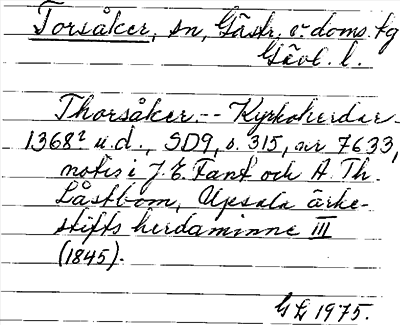 Torsåker, sn, Gästr. ö. doms. tg
Gävl. l.
Thorsåker. -- Kyrkoherdar
1368? u.d., SD9, s. 315, nr 7633,
notis i J. E. Fant och A. Th.
Låstbom, Upsala ärke-
stifts herdaminne III
(1845).
G L 1975.